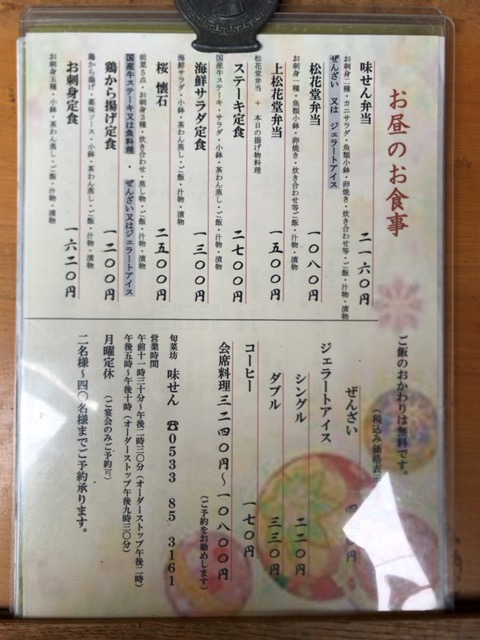 お昼のお食事
味せん弁当 二一六〇円
お刺身二種・カニサラダ・魚類小鉢・卵焼き・炊き合わせ等・ご飯・汁物・漬物
ぜんざい 又は ジェラートアイス
松花堂弁当 一〇八〇円
お刺身一種・魚類小鉢・卵焼き・炊き合わせ等ご飯・汁物・漬物
上松花堂弁当 一五〇〇円
松花堂弁当 + 本日の揚げ物料理
ステーキ定食 二七〇〇円
国産牛ステーキ・サラダ・小鉢・茶わん蒸し・ご飯・汁物・漬物
海鮮サラダ定食 一三〇〇円
海鮮サラダ・小鉢・茶わん蒸し・ご飯・汁物・漬物
桜 懐石 二五〇〇円
前菜5点・お刺身3種・炊き合わせ・蒸し物・ご飯・汁物・漬物
国産牛ステーキ又は魚料理 ・ ぜんざい又はジェラートアイス
鶏から揚げ定食 一二〇〇円
鶏から揚げ・薬味ソース・小鉢・茶わん蒸し・ご飯・汁物・漬物
お刺身定食 一六二〇円
お刺身五種・小鉢・茶わん蒸し・ご飯・汁物・漬物
ご飯のおかわりは無料です。
(税込み価格表
ぜんざい 四 円
ジェラートアイス
シングル 二二〇円
ダブル 三三〇円
コーヒー 一七〇円
会席料理三二四〇円~一〇八〇〇円
(ご予約をお勧めします)
旬菜坊 味せん ☎0533 85 3161
営業時間
午前十一時三十分~午後二時三〇分(オーダーストップ午後二時)
午後五時~午後十時(オーダーストップ午後九時三〇分)
月曜定休 (ご宴会のみご予約可)
二名様~四〇名様までご予約承ります。